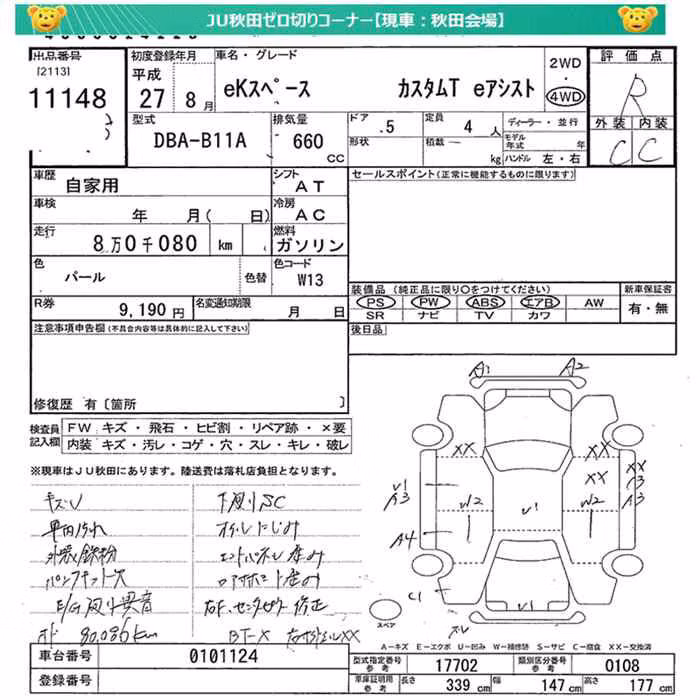 JU秋田ゼロ切りコーナー【現車：秋田会場】
出品番号
[2113]
11148
初度登録年月
平成
27 8月
車名・グレード
eKスペース カスタムT eアシスト
2WD
・
4WD
評価点
R
型式
DBA-B11A
排気量
660
cc
ドア .5
形状
定員 4 人
積載 kg
ディーラー・並行
モデル年式 年
ハンドル 左・右
外装 内装
C C
車歴
自家用
シフト
AT
セールスポイント(正常に機能するものに限ります)
車検
年 月( 日)
冷房
AC
走行
8万0千080 km
燃料
ガソリン
色
パール
色替
色コード
W13
装備品 (純正品に限り○をつけてください)
PS PW ABS エアB AW
SR ナビ TV カワ
新車保証書
有・無
R券
9,190円
名変通知期限
月 日
後日品
注意事項申告欄(不具合内容等は具体的に記入して下さい)
修復歴 有〔箇所 〕
検査員記入欄
FW キズ・飛石・ヒビ割・リペア跡・×要
内装 キズ・汚レ・コゲ・穴・スレ・キレ・破レ
※現車はJU秋田にあります。陸送費は落札店負担となります。
A1 A2
XX XX
XX XX
U1 A3
A3
W2 U1 W2
A4
C1
スレ
スペア
キズU
下廻りSC
車内汚れ
オイルにじみ
外装鉄粉
エンドパネル凹み
E/G廻り異音
修正
80,086km
BT-X
A－キズ E－エクボ U－凹み W－補修跡 S－サビ C－腐食 XX－交換済
車台番号 0101124
登録番号
型式指定番号参考 17702
類別区分番号参考 0108
車庫証明用参考
長さ 339 cm 幅 147 cm 高さ 177 cm